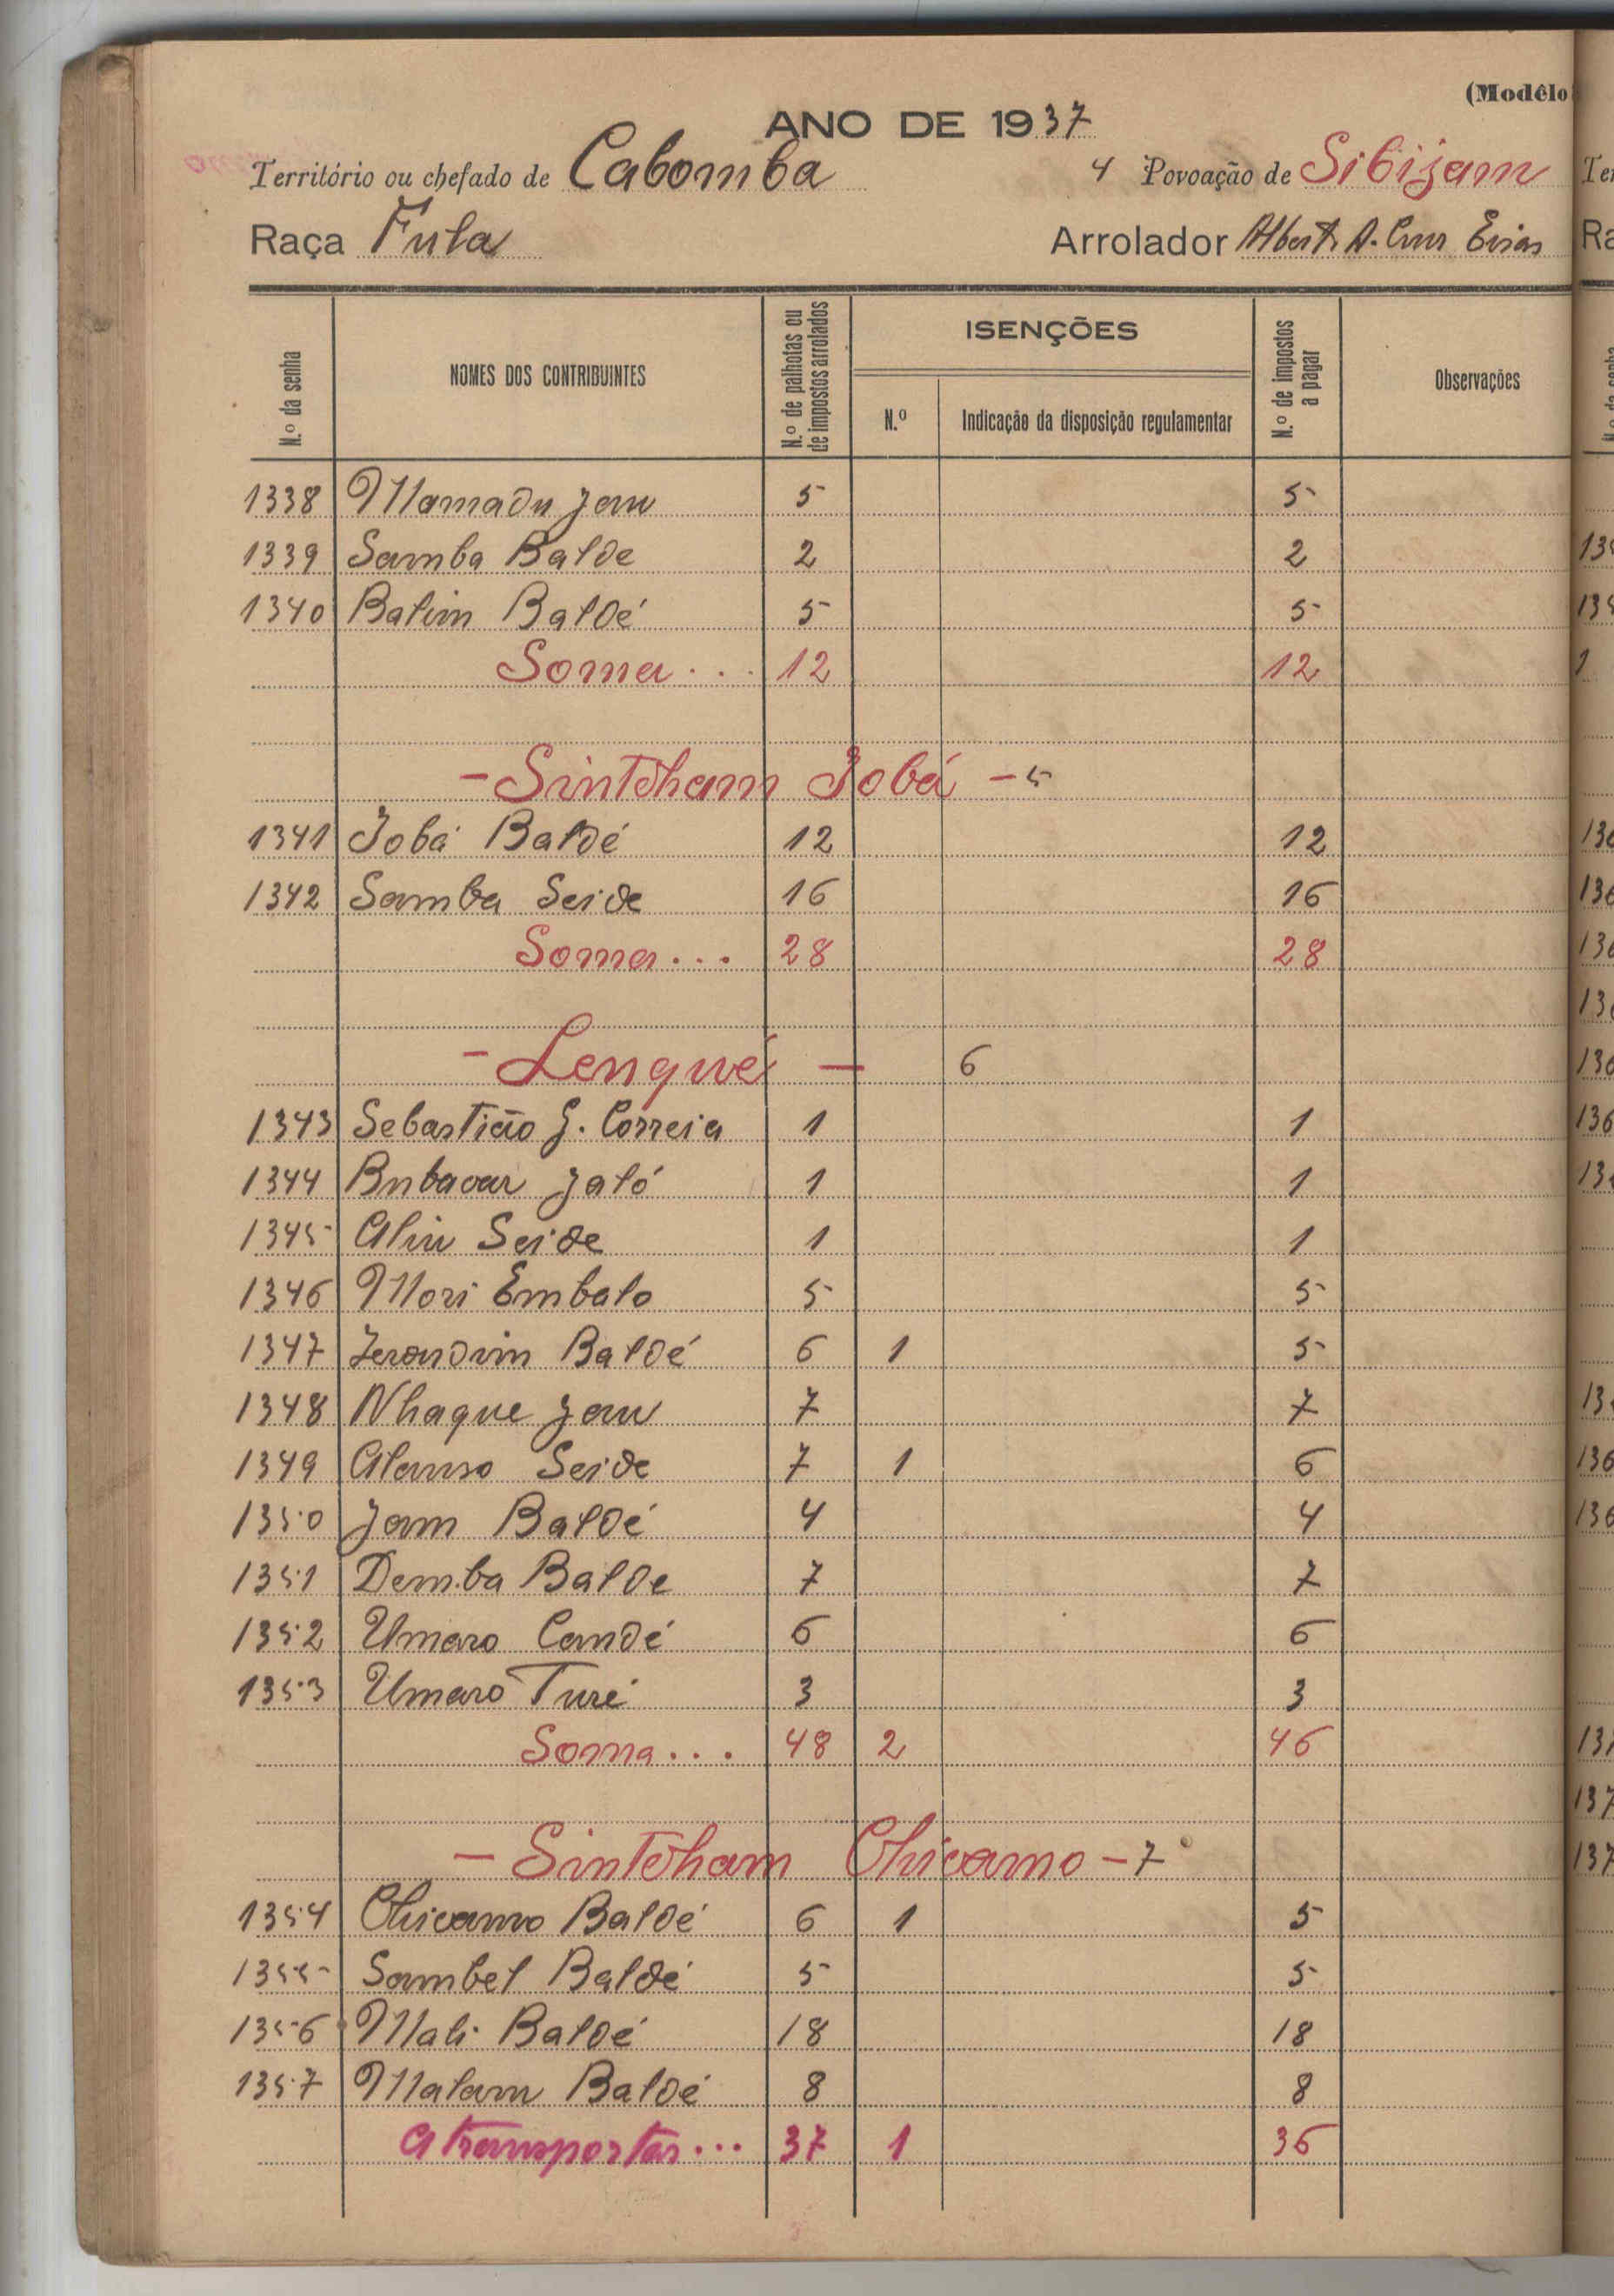 (Modêlo
ANO DE 1937
Território ou chefado de Cabomba 4 Povoação de Sibijam
Raça Fula Arrolador A. Cruz
N.º da senha NOMES DOS CONTRIBUINTES N.º de palhotas ou de impostos arrolados ISENÇÕES N.º Indicação da disposição regulamentar N.º de impostos a pagar Observações
1338 Mamadu Jau 5 5
1339 Samba Balde 2 2
1340 Balim Baldé 5 5
Soma... 12 12
- Sintcham Jobá - 5
1341 Jobá Baldé 12 12
1342 Samba Seide 16 16
Soma... 28 28
- Lenqué - 6
1343 Sebastião G. Correia 1 1
1344 Bubacar Jaló 1 1
1345 Aliu Seide 1 1
1346 Mori Embalo 5 5
1347 Baldé 6 1 5
1348 Nhaque Jau 7 7
1349 Seide 7 1 6
1350 Jam Baldé 4 4
1351 Demba Balde 7 7
1352 Umaro Candé 6 6
1353 Umaro Turé 3 3
Soma... 48 2 46
- Sintcham Chicamo - 7
1354 Chicamo Baldé 6 1 5
1355 Sambel Baldé 5 5
1356 Mali Baldé 18 18
1357 Malam Baldé 8 8
A transportar... 37 1 36